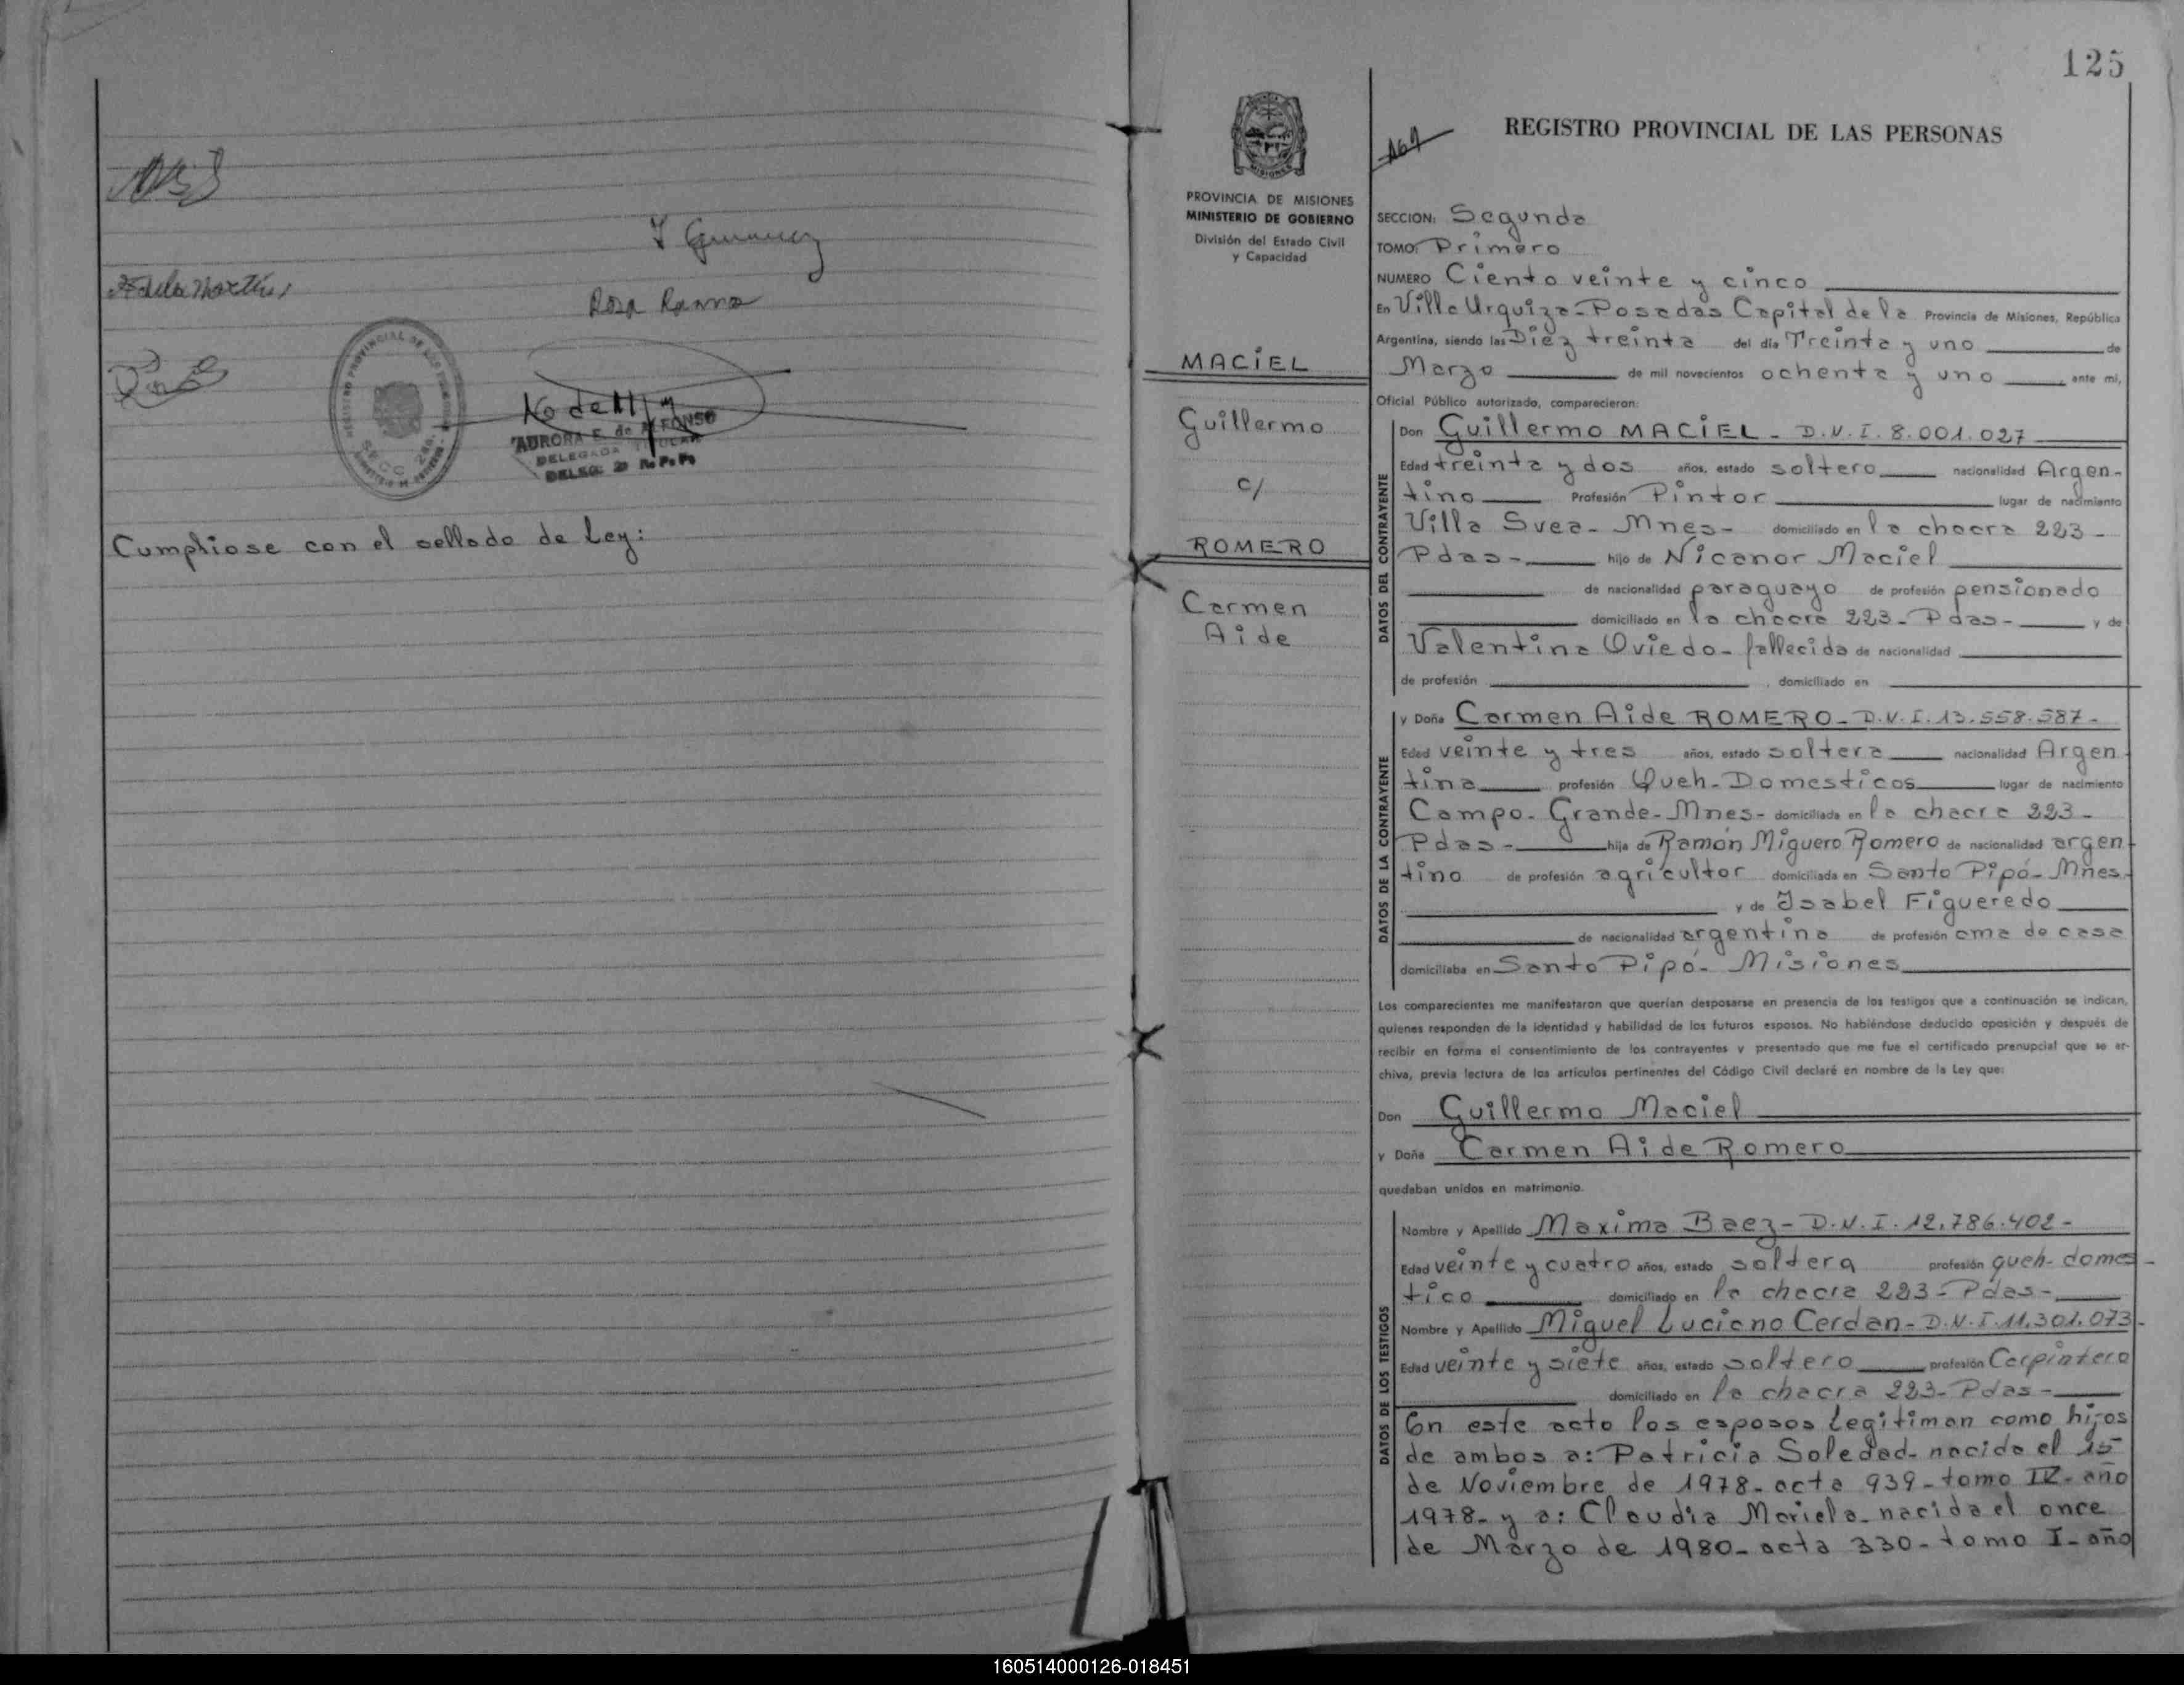 Rosa Ramna
REGISTRO PROVINCIAL DE LAS PERSONAS
SECC. 2da.
AURORA E. de ALFONSO
DELEGADA TITULAR
DELEG. 2a R. P. Ps
Cumpliose con el sellado de Ley:
125
PROVINCIA DE MISIONES
MINISTERIO DE GOBIERNO
División del Estado Civil
y Capacidad
MACIEL
Guillermo
c/
ROMERO
Carmen
Aide
REGISTRO PROVINCIAL DE LAS PERSONAS
SECCION: Segunda
TOMO: Primero
NUMERO Ciento veinte y cinco
En Villa Urquiza-Posadas Capital de la Provincia de Misiones, República
Argentina, siendo las Diez treinta del día Treinta y uno de
Marzo de mil novecientos ochenta y uno, ante mi,
Oficial Público autorizado, comparecieron:
DATOS DEL CONTRAYENTE
Don Guillermo MACIEL - D.N.I. 8.001.027
Edad treinta y dos años, estado soltero nacionalidad Argen-
tino Profesión Pintor lugar de nacimiento
Villa Svea- Mnes- domiciliado en la chacra 223-
Pdas- hijo de Nicanor Maciel
de nacionalidad paraguayo de profesión pensionado
domiciliado en la chacra 223- Pdas- y de
Valentina Oviedo- fallecida de nacionalidad
de profesión , domiciliado en
DATOS DE LA CONTRAYENTE
y Doña Carmen Aide ROMERO- D.N.I. 13.558.587-
Edad veinte y tres años, estado soltera nacionalidad Argen
tina profesión Queh-Domesticos lugar de nacimiento
Campo- Grande-Mnes- domiciliada en la chacra 223-
Pdas- hija de Ramón Miguero Romero de nacionalidad argen
tino de profesión agricultor domiciliada en Santo Pipó- Mnes-
y de Isabel Figueredo
de nacionalidad argentina de profesión ama de casa
domiciliaba en Santo Pipó- Misiones
Los comparecientes me manifestaron que querían desposarse en presencia de los testigos que a continuación se indican,
quienes responden de la identidad y habilidad de los futuros esposos. No habiéndose deducido oposición y después de
recibir en forma el consentimiento de los contrayentes y presentado que me fue el certificado prenupcial que se ar-
chiva, previa lectura de los artículos pertinentes del Código Civil declaré en nombre de la Ley que:
Don Guillermo Maciel
y Doña Carmen Aide Romero
quedaban unidos en matrimonio.
DATOS DE LOS TESTIGOS
Nombre y Apellido Maxima Baez- D.N.I. 12.786.402-
Edad veinte y cuatro años, estado soltera profesión queh- domes-
tico domiciliado en la chacra 223- Pdas-
Nombre y Apellido Miguel Luciano Cerdan- D.N.I. 11.301.073-
Edad veinte y siete años, estado soltero profesión Carpintero
domiciliado en la chacra 223- Pdas-
En este acto los esposos legitiman como hijos
de ambos a: Patricia Soledad- nacida el 15
de Noviembre de 1978- acta 939- tomo IV- año
1978- y a: Claudia Mariela- nacida el once
de Marzo de 1980- acta 330- tomo I- año
160514000126-018451